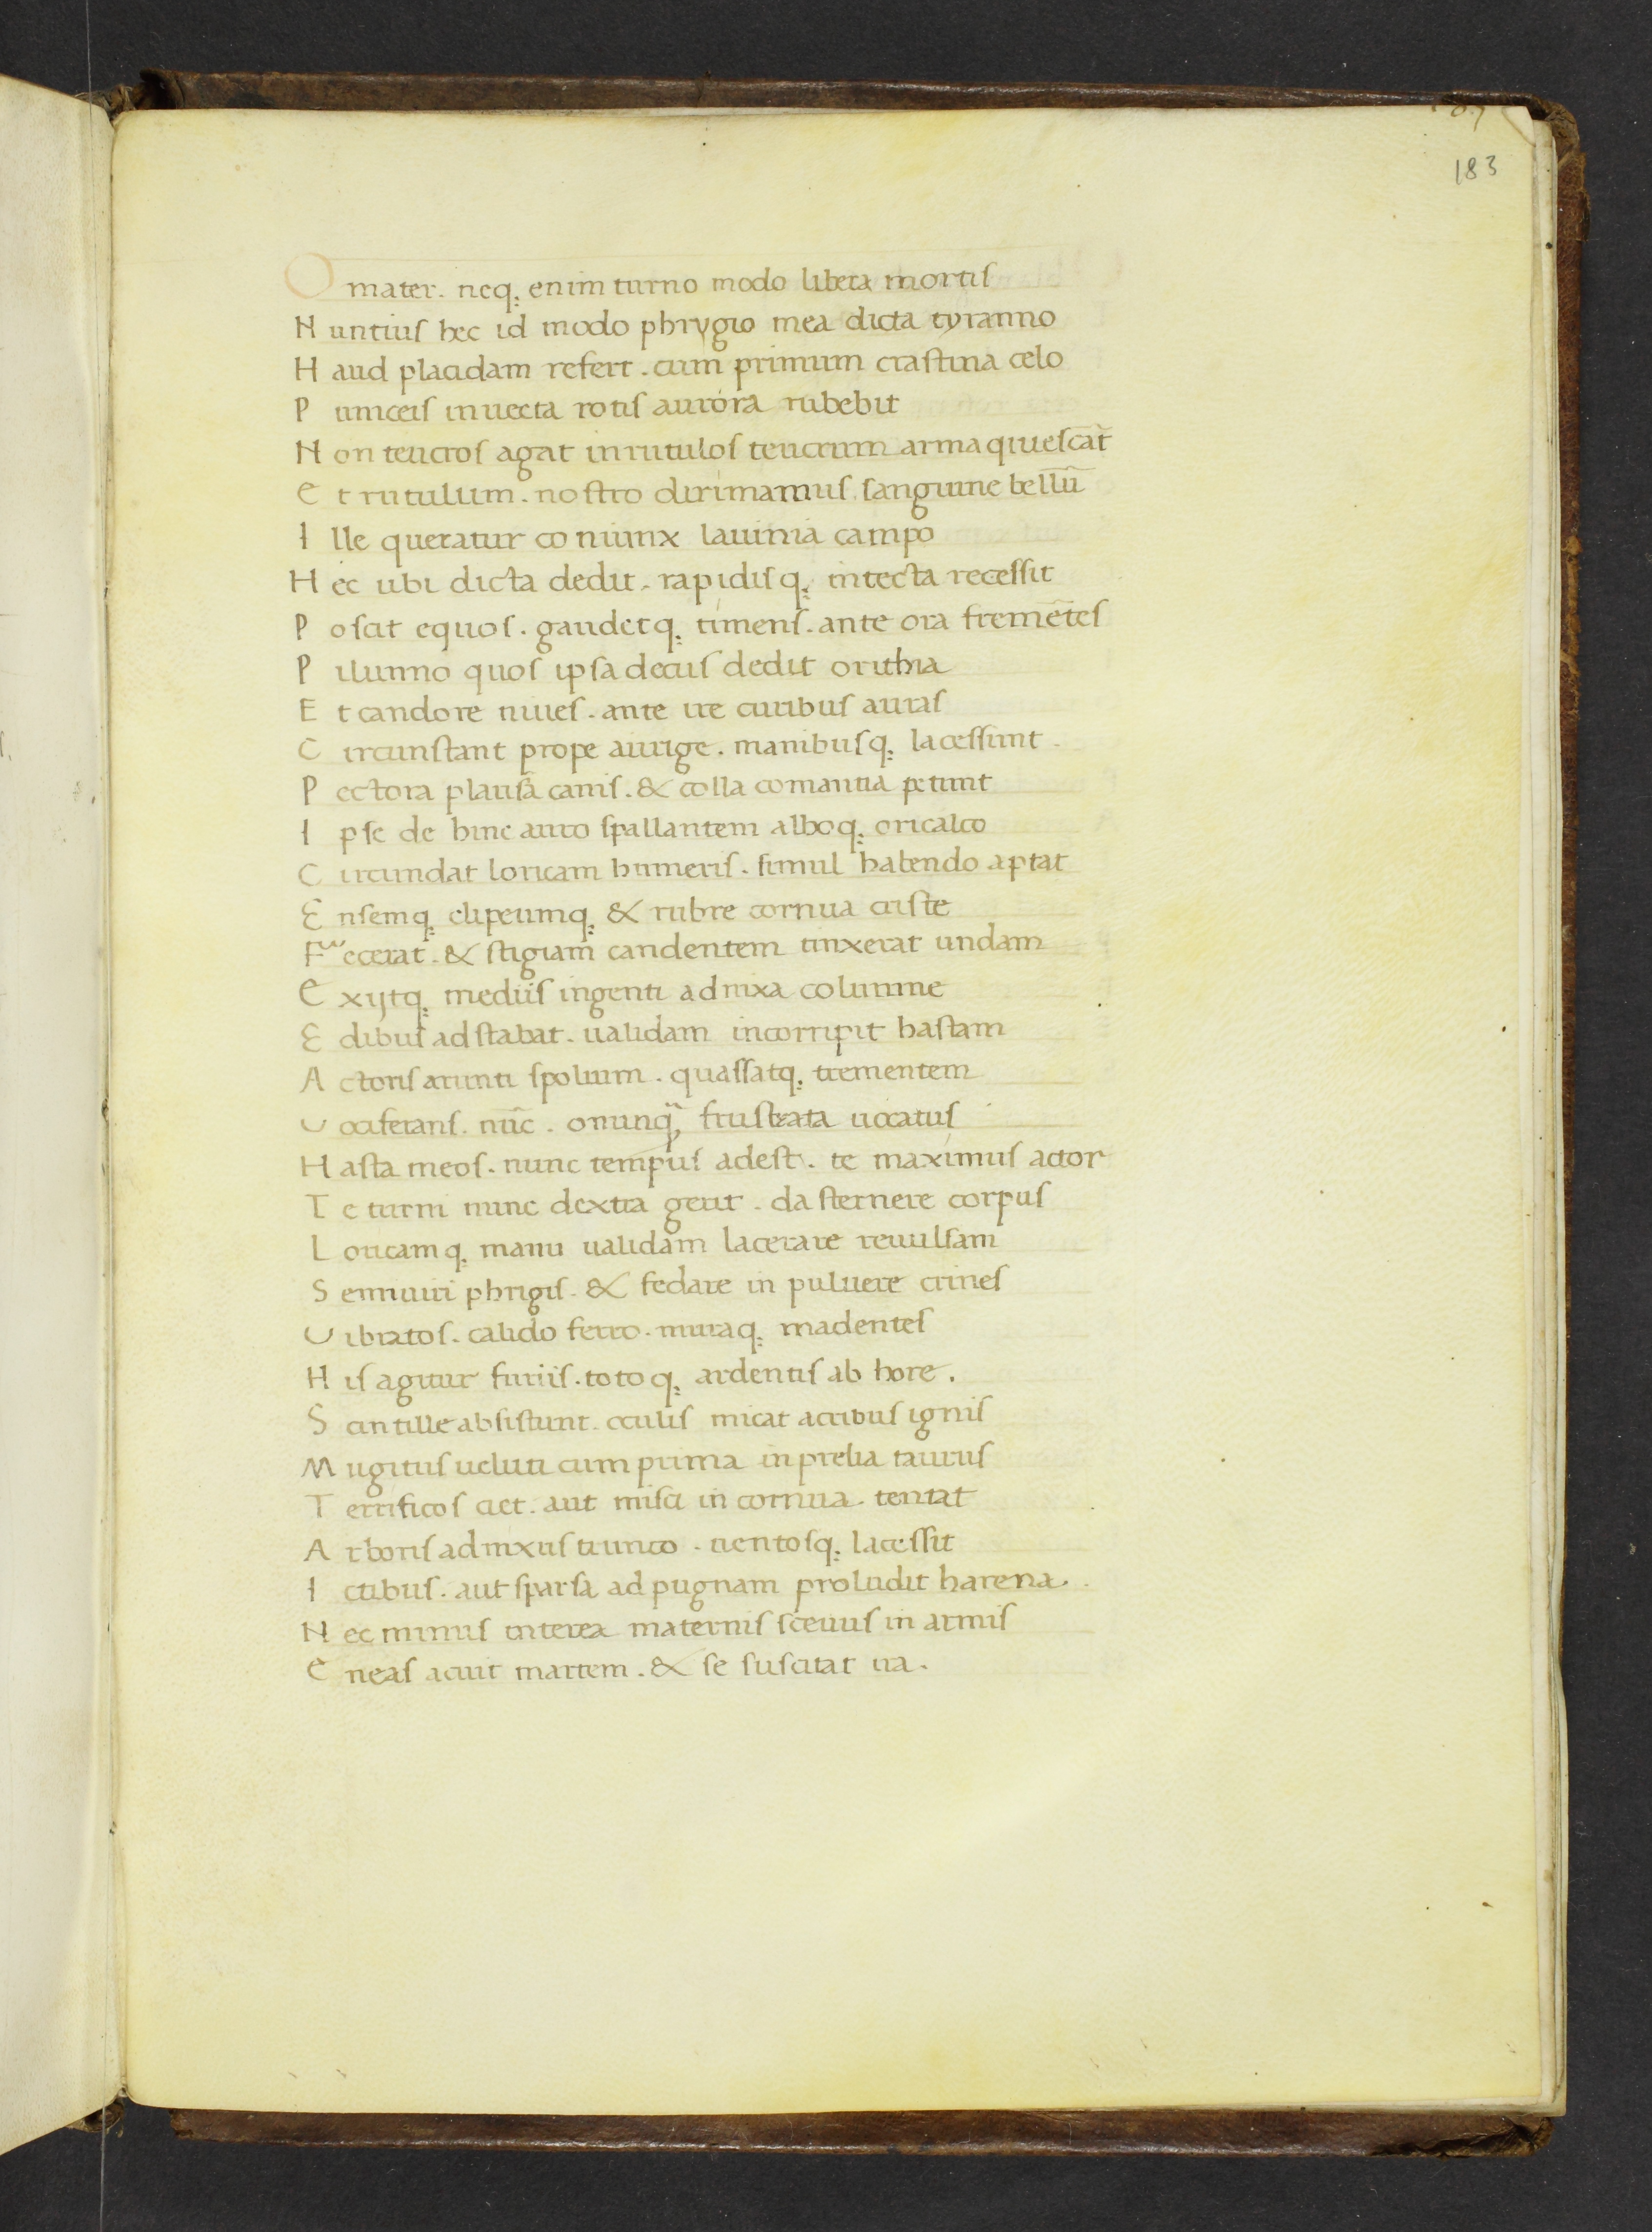 183
O mater. neq; enim turno modo libera mortis
Nuntius hec id modo phrygio mea dicta tyranno
Haud placidam refert. cum primum crastina celo
Puniceis inuecta rotis aurora rubebit
Non teucros agat in rutulos teucrum arma quiescāt
Et rutulum. nostro dirimamus sanguine bellū
Ille queratur coniunx lauinia campo
Hec ubi dicta dedit. rapidisq; intecta recessit
Poscit equos. gaudetq; timens. ante ora fremētes
Pilunno quos ipsa decus dedit orithia
Et candore niues. ante ire curibus auras
Circunstant prope aurige. manibusq; lacessunt.
Pectora plausa canis. & colla comantia petunt
Ipse de hinc auro spallantem alboq; oricalco
Circundat loricam humeris. simul habendo aptat
Ensemq; clipeumq; & rubre cornua criste
Fecerat. & stigiam candentem tinxerat undam
Exijtq; mediis ingenti adnixa columne
Edibus adstabat. ualidam incorripit hastam
Actoris arunti spolium. quassatq; trementem
Uociferans. nūc. o nunq̃, frustrata uocatus
Hasta meos. nunc tempus adest. te maximus actor
Te turni nunc dextra gerit. da sternere corpus
Loricamq; manu ualidam lacerare reuulsam
Semiuiri phrigis. & fedare in puluere crines
Uibratos. calido ferro. miraq; madentes
His agitur furiis. totoq; ardentis ab hore.
Scintille absistunt. oculis micat acribus ignis
Mugitus ueluti cum prima in prelia taurus
Terrificos ciet. aut misci in cornua. tentat
Arboris adnixus trunco. uentosq; lacessit
Ictibus. aut sparsa ad pugnam proludit harena.
Nec minus interea maternis sceuus in armis
Eneas acuit martem. & se suscitat ira.